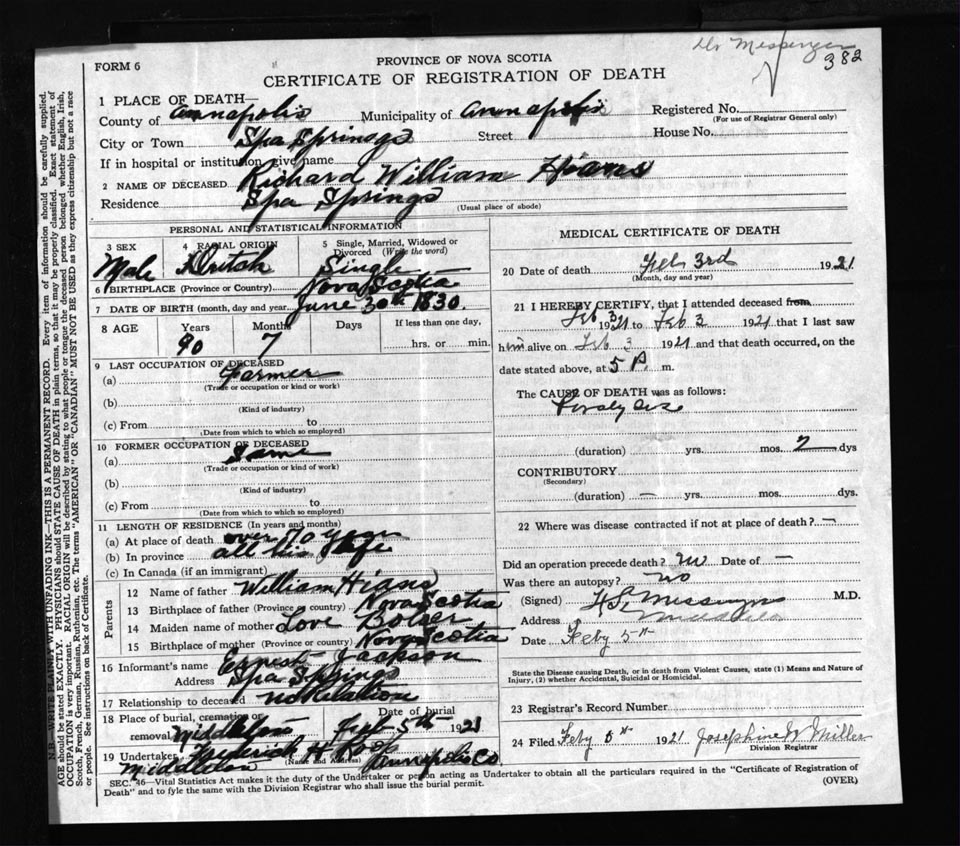 Dr Messenger
382
FORM 6
PROVINCE OF NOVA SCOTIA
CERTIFICATE OF REGISTRATION OF DEATH
1 PLACE OF DEATH—
County of Annapolis Municipality of Annapolis Registered No.
(For use of Registrar General only)
City or Town Spa Springs Street House No.
If in hospital or institution give name
2 NAME OF DECEASED Richard William Hians
Residence Spa Springs
(Usual place of abode)
PERSONAL AND STATISTICAL INFORMATION
3 SEX Male
4 RACIAL ORIGIN
5 Single, Married, Widowed or Divorced (Write the word) Single
6 BIRTHPLACE (Province or Country) Nova Scotia
7 DATE OF BIRTH (month, day and year) June 30th 1830.
8 AGE Years Months Days If less than one day,
90 7 hrs. or min.
9 LAST OCCUPATION OF DECEASED
(a) Farmer
(Trade or occupation or kind or work)
(b)
(Kind of industry)
(c) From to
(Date from which to which so employed)
10 FORMER OCCUPATION OF DECEASED
(a) Same
(Trade or occupation or kind of work)
(b)
(Kind of industry)
(c) From to
(Date from which to which so employed)
11 LENGTH OF RESIDENCE (In years and months)
(a) At place of death over 70 years
(b) In province all his life
(c) In Canada (if an immigrant)
Parents
12 Name of father William Hians
13 Birthplace of father (Province or country) Nova Scotia
14 Maiden name of mother Love Bolser
15 Birthplace of mother (Province or country) Nova Scotia
16 Informant's name Ernest Jackson
Address Spa Springs
17 Relationship to deceased no Relation
18 Place of burial, cremation or removal Middleton Date of burial Feb 5th 1921
19 Undertaker Frederick H
(Name and Address)
Middleton Annapolis Co.
MEDICAL CERTIFICATE OF DEATH
20 Date of death Feb 3rd 1921
(Month, day and year)
21 I HEREBY CERTIFY, that I attended deceased from
Feb 3 1921 to Feb 3 1921 that I last saw
him alive on Feb 3 1921 and that death occurred, on the
date stated above, at 5 P. m.
The CAUSE OF DEATH was as follows:
Paralysis
(duration) — yrs. mos. 2 dys
CONTRIBUTORY
(Secondary)
(duration) — yrs. mos. dys.
22 Where was disease contracted if not at place of death? —
Did an operation precede death? no Date of —
Was there an autopsy? no
(Signed) Messenger M.D.
Address Middleton
Date Feby 5th
State the Disease causing Death, or in death from Violent Causes, state (1) Means and Nature of
Injury, (2) whether Accidental, Suicidal or Homicidal.
23 Registrar's Record Number
24 Filed Feby 5th 1921 Josephine W Miller
Division Registrar
SEC. 46—Vital Statistics Act makes it the duty of the Undertaker or person acting as Undertaker to obtain all the particulars required in the "Certificate of Registration of
Death" and to fyle the same with the Division Registrar who shall issue the burial permit. (OVER)
N.B.—WRITE PLAINLY WITH UNFADING INK—THIS IS A PERMANENT RECORD. Every item of information should be carefully supplied.
AGE should be stated EXACTLY. PHYSICIANS should STATE CAUSE OF DEATH in plain terms, so that it may be properly classified. Exact statement of
OCCUPATION is very important. RACIAL ORIGIN will be described by stating to what people or tongue the deceased person belonged whether English, Irish,
Scotch, French, German, Russian, Ruthenian, etc. The terms "AMERICAN" or "CANADIAN" MUST NOT BE USED as they express citizenship but not a race
or people. See instructions on back of Certificate.